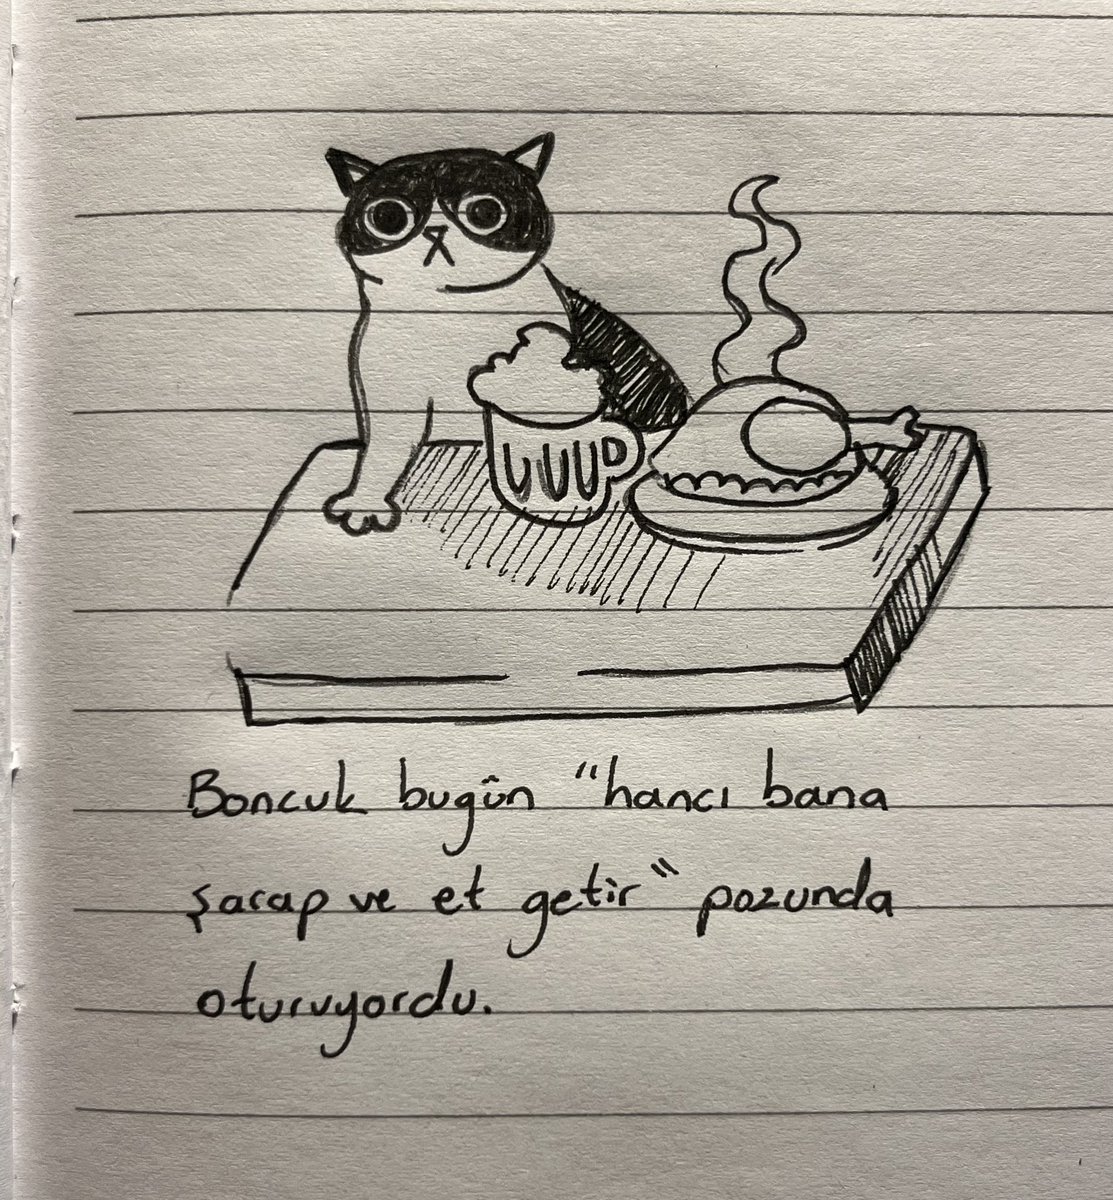 Boncuk bugün "hancı bana
şarap ve et getir" pozunda
oturuyordu.